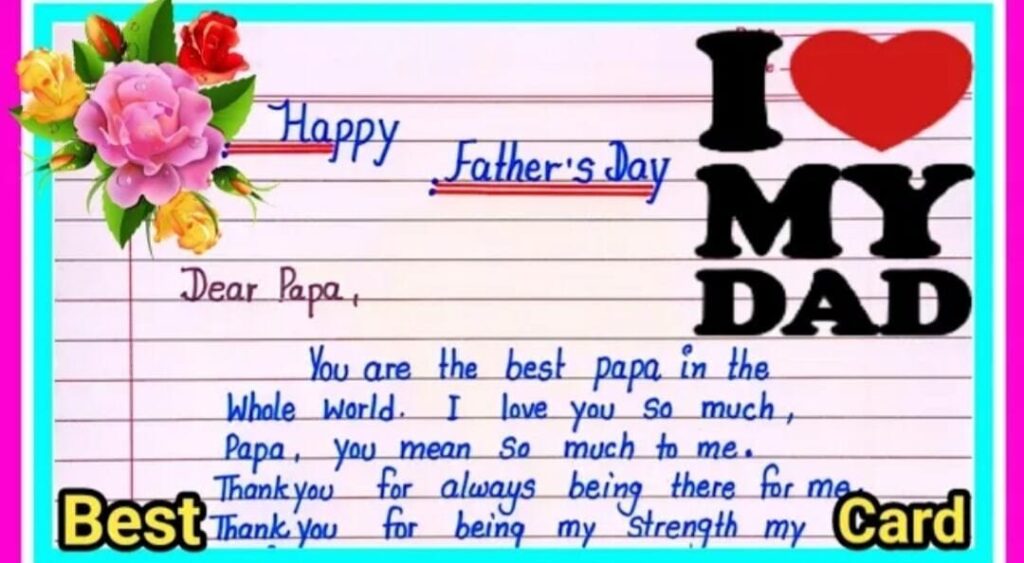 I
MY
DAD
Happy
Father's Day
Dear Papa,
You are the best papa in the
Whole World. I love you so much,
Papa, you mean so much to me.
Thank you for always being there for me.
Thank you for being my strength my
Best
Card